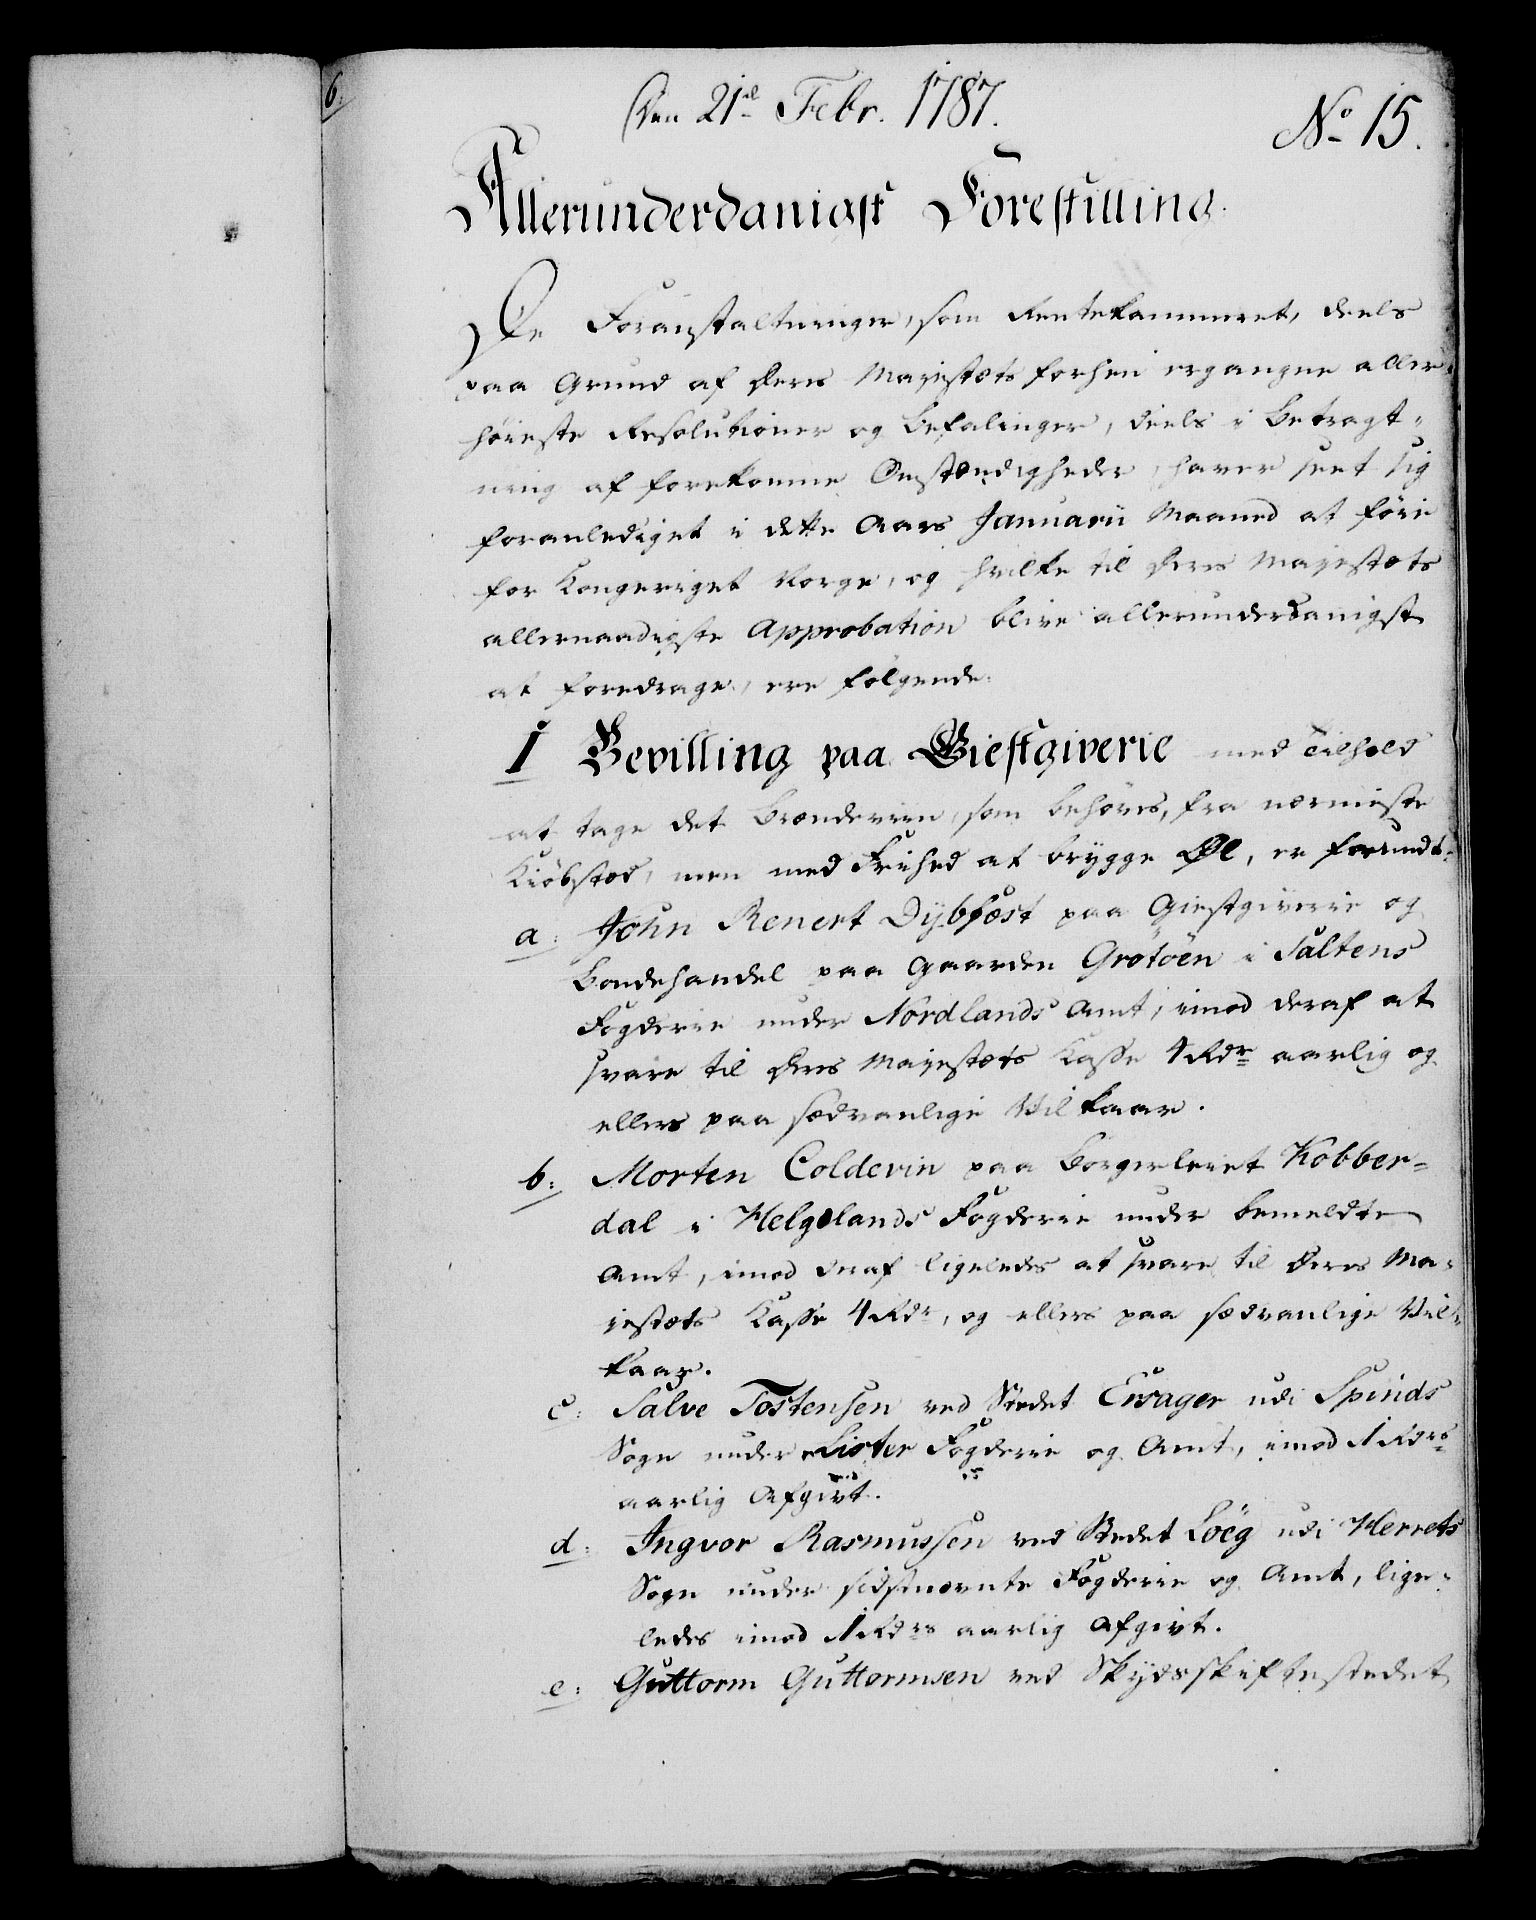 6.
Den 21de Febr. 1787.
No 15.
Allerunderdanigst Forestilling.
De Foranstaltninger, som Rentekammeret, deels
paa Grund af Deres Majestæts forhen ergangne aller-
høieste Resolutioner og Befalinger, deels i Betragt-
ning af forekomne Omstændigheder, haver seet sig
foranlediget i dette Aars Januarii Maaned at føie
for Kongeriget Norge, og hvilke til Deres Majestæts
allernaadigste Approbation blive allerunderdanigst
at foredrage, ere følgende:
1 Bevilling paa Giestgiverie med Tilhold
at tage det Brændeviin, som behøves, fra nærmeste
Kiøbstæd, men med Friehed at brygge Øl, er forundt:
a: John Renert Dybfæst paa Giestgiverie og
Bondehandel paa Gaarden Grotøen i Saltens
Fogderie under Nordlands Amt, imod deraf at
svare til Deres Majestæts Kasse 4 Rdr aarlig og
ellers paa sædvanlige Vilkaar.
b: Morten Colderin paa Borgerleiet Kobber-
dal i Helgelands Fogderie under bemeldte
Amt, imod deraf ligeledes at svare til Deres Ma-
jestæts Kasse 4 Rdr, og ellers paa sædvanlige Vil-
kaar.
c: Salve Tostensen ved Stedet Eirsager udi Spinds
Sogn under Lister Fogderie og Amt, imod 1 Rdrs
aarlig Afgivt.
d: Ingvor Rasmussen ved Stedet Löeg udi Herrets
Sogn under sidstnævnte Fogderie og Amt, lige-
ledes imod 1 Rdrs aarlig Afgivt.
e: Guttorm Guttormsen ved Skydsskiftestedet